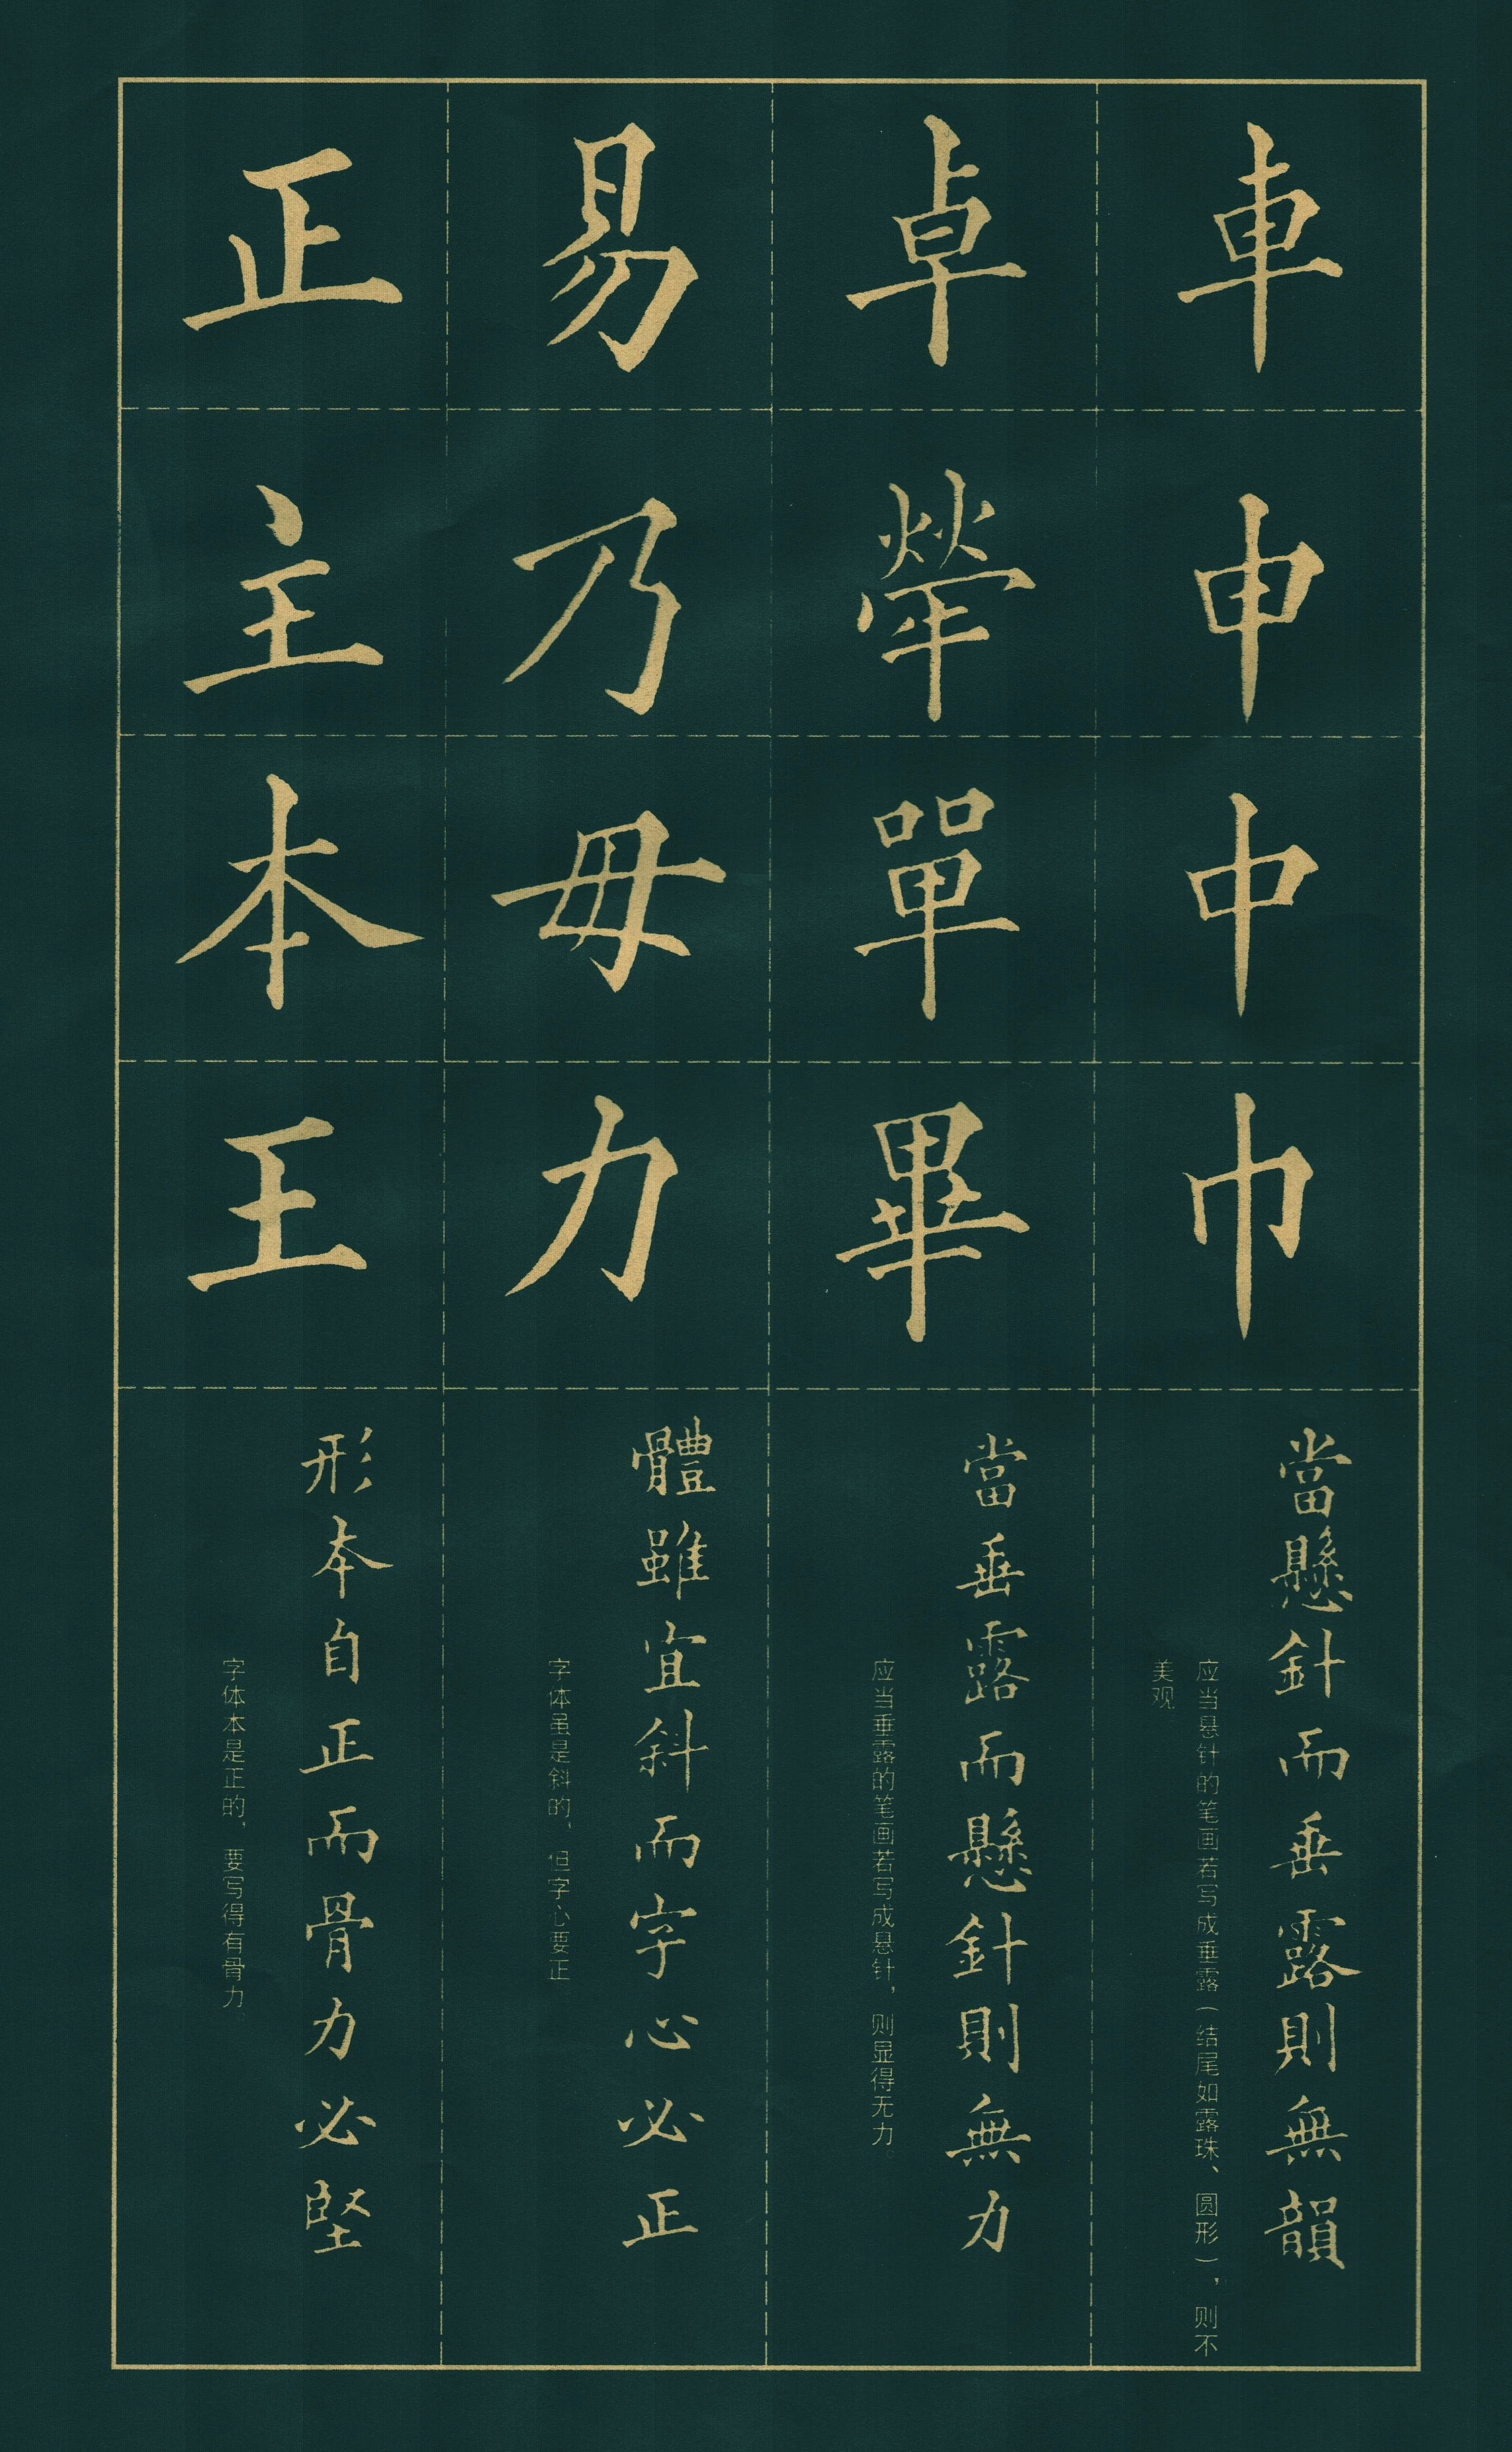 車申中巾
當懸針而垂露則無韻
应当悬针的笔画若写成垂露（结尾如露珠、圆形），则不
美观
卓犖單畢
當垂露而懸針則無力
应当垂露的笔画若写成悬针，则显得无力。
易乃毋力
體雖宜斜而字心必正
字体虽是斜的，但字心要正
正主本王
形本自正而骨力必堅
字体本是正的，要写得有骨力。